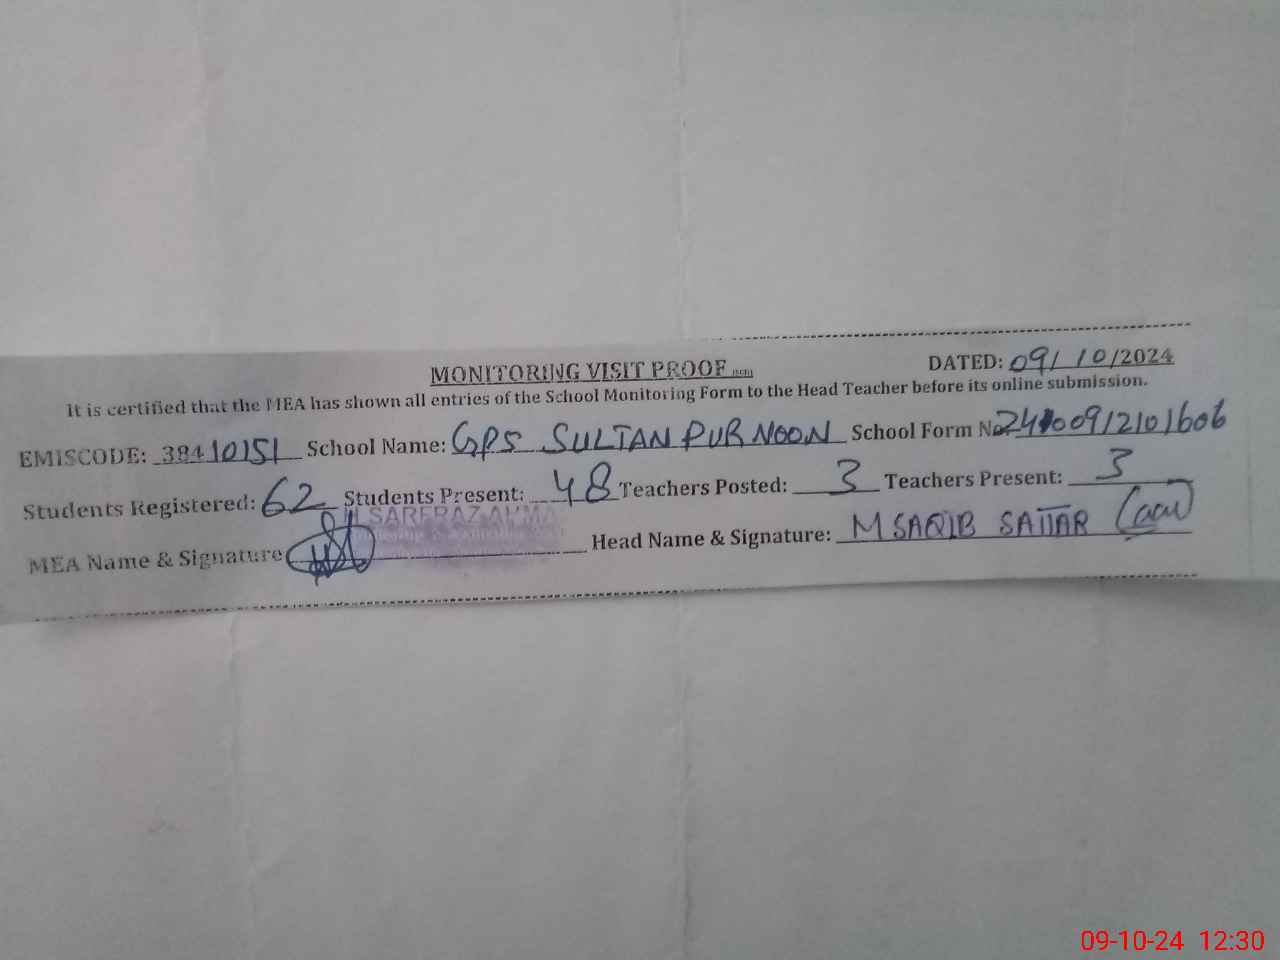 MONITORING VISIT PROOF
DATED: 09/10/2024
It is certified that the MEA has shown all entries of the School Monitoring Form to the Head Teacher before its online submission.
EMISCODE: 38410151 School Name: GPS SULTAN PUR NOON School Form No 24100912101606
Students Registered: 62 Students Present: 48 Teachers Posted: 3 Teachers Present: 3
MEA Name & Signature SARFRAZ Head Name & Signature: M SAQIB SATTAR
09-10-24 12:30